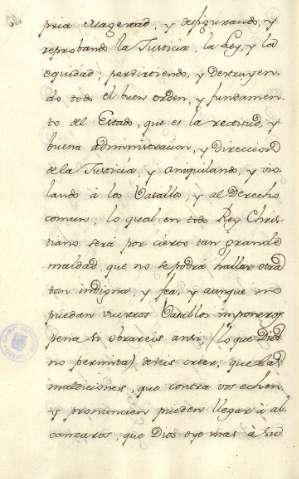 pria Magestad, y desfigurando, y
reprobando la Justicia, la Ley, y la
equidad; pervirtiendo, y destruyen-
do todo el buen orden, y fundamen-
to del Estado, que es la rectitud, y
buena administracion, y direccion
de la Justicia, y aniquilando, y vio-
lando á los Vasallos, y al Derecho
comun, lo qual, en todo Rey Chris-
tiano será por cierto tan grande
maldad, que no se podrá hallar otra
tan indigna, y fea, y aunque no
puedan vuestros Vasallos imponeros
pena si obrareis anti, (lo que Dios
no permita) deveis creer, que las
maldiciones, que contra vos echen,
y pronuncien pueden llegar á al-
canzaros, que Dios oye mas á